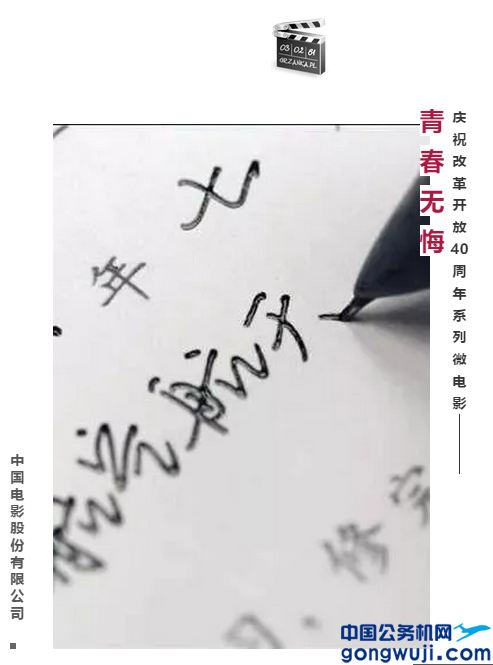 03 02 81
GRZANKA.PL
庆祝改革开放40周年系列微电影
青春无悔
年 七
航空航天
习、修完
中国电影股份有限公司
中国公务机网
gongwuji.com